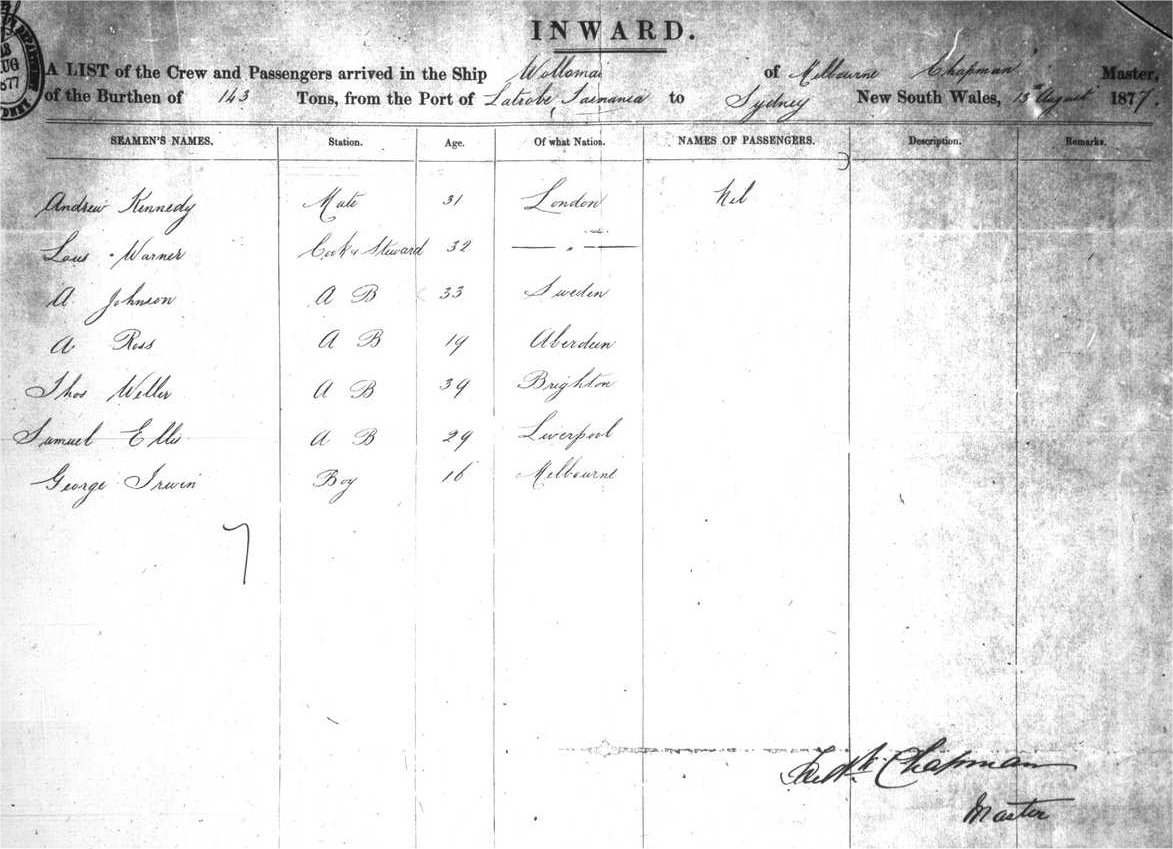 INWARD.
A LIST of the Crew and Passengers arrived in the Ship Wollomai of Melbourne Chapman Master,
of the Burthen of 143 Tons, from the Port of Latrobe, Tasmania to Sydney New South Wales, 13th August 1877.
SEAMEN'S NAMES. Station. Age. Of what Nation. NAMES OF PASSENGERS. Description. Remarks.
Andrew Kennedy Mate 31 London Nil
Warner Cook & Steward 32 — " —
A Johnson A B 33 Sweden
A Ross A B 19 Aberdeen
Thos Weller A B 39 Brighton
Samuel Ellis A B 29 Liverpool
George Irwin Boy 16 Melbourne
7
Chapman
Master